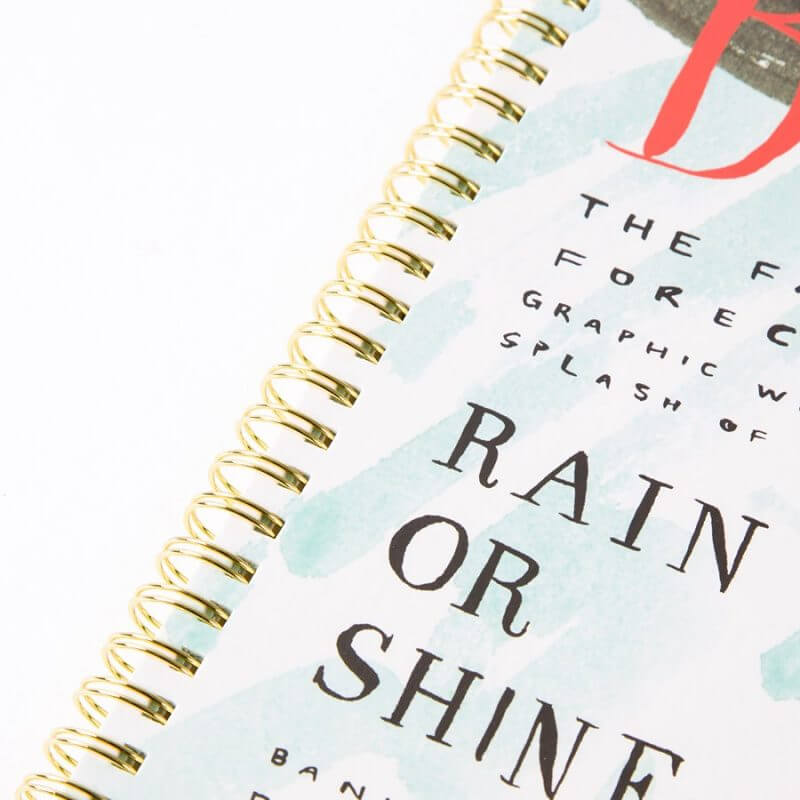 B
THE FA
FOREC
GRAPHIC W
SPLASH OF
RAIN
OR
SHINE
BAN